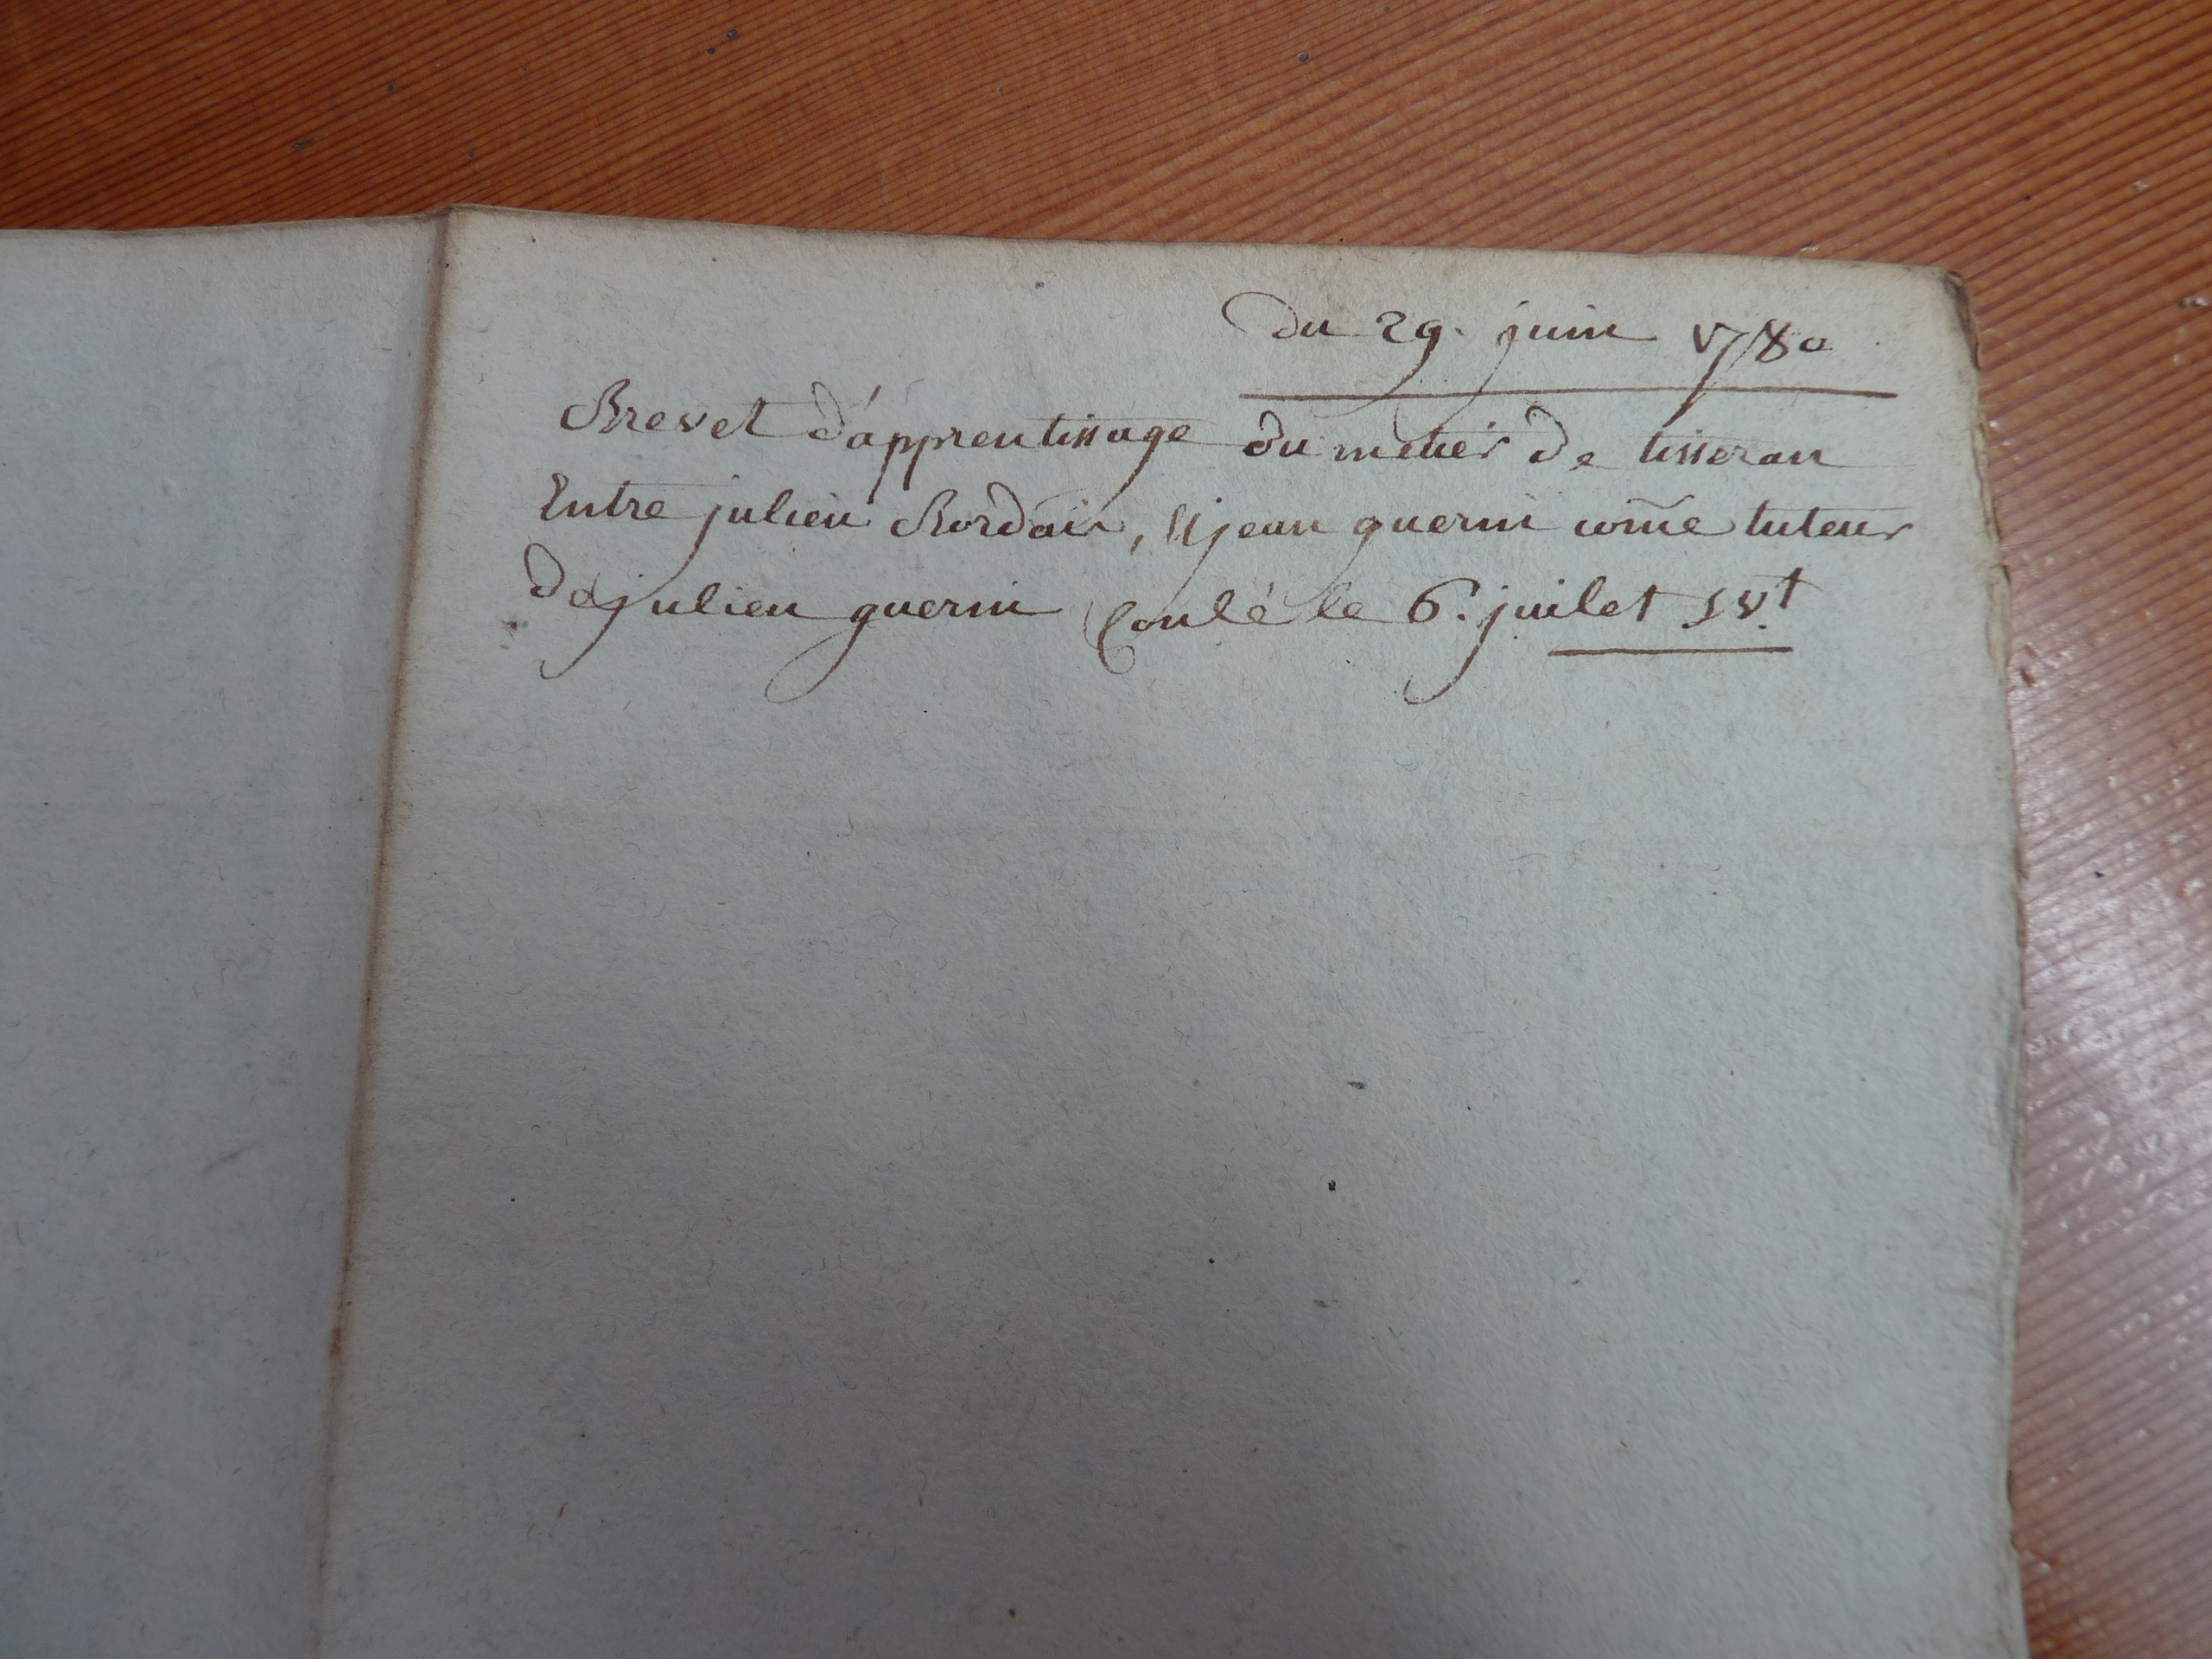 du 29. juin 1780
Brevet d'apprentissage du metier de tisseran
Entre julien Bordain, & jean guerin com̃e tuteur
de julien guerin Conlé le 6. juilet svt